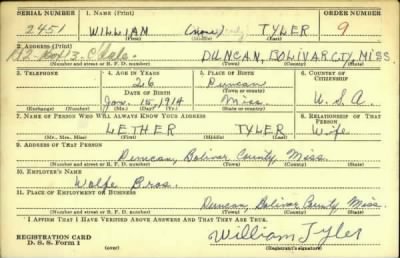 SERIAL NUMBER 1. NAME (Print) ORDER NUMBER
2451 WILLIAM (none) TYLER 9
(First) (Middle) (Last)
2. ADDRESS (Print)
R2 Box 13 DUNCAN, BOLIVAR CTY, MISS.
(Number and street or R. F. D. number) (Town) (County) (State)
3. TELEPHONE 4. AGE IN YEARS 5. PLACE OF BIRTH 6. COUNTRY OF CITIZENSHIP
26 Duncan
DATE OF BIRTH (Town or county)
Jan. 15, 1914 Miss. U.S.A.
(Exchange) (Number) (Mo.) (Day) (Yr.) (State or country)
7. NAME OF PERSON WHO WILL ALWAYS KNOW YOUR ADDRESS 8. RELATIONSHIP OF THAT PERSON
LETHER TYLER Wife
(Mr., Mrs., Miss) (First) (Middle) (Last)
9. ADDRESS OF THAT PERSON
Duncan, Bolivar County, Miss.
(Number and street or R. F. D. number) (Town) (County) (State)
10. EMPLOYER'S NAME
Wolfe Bros.
11. PLACE OF EMPLOYMENT OR BUSINESS
Duncan, Bolivar County, Miss.
(Number and street or R. F. D. number) (Town) (County) (State)
I AFFIRM THAT I HAVE VERIFIED ABOVE ANSWERS AND THAT THEY ARE TRUE.
William Tyler
REGISTRATION CARD
D. S. S. Form 1 (over) (Registrant's signature)